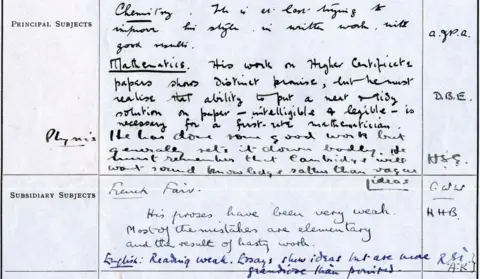 Chemistry. He is at last trying to
PRINCIPAL SUBJECTS
improve his style in written work, with
good results.
a.g.p.a.
Mathematics. His work on Higher Certificate
papers shows distinct promise, but he must
realise that ability to put a neat & tidy
solution on paper – intelligible & legible – is
necessary for a first-rate mathematician.
D.B.E.
Physics
He has done some good work but
generally sets it down badly. He
must remember that Cambridge will
want sound knowledge rather than vague
ideas
H.S.G.
SUBSIDIARY SUBJECTS
French Fair.
G.W.W.
His proses have been very weak.
H.H.B.
Most of the mistakes are elementary
and the result of hasty work.
English: Reading weak. Essays show ideas but are more
grandiose than